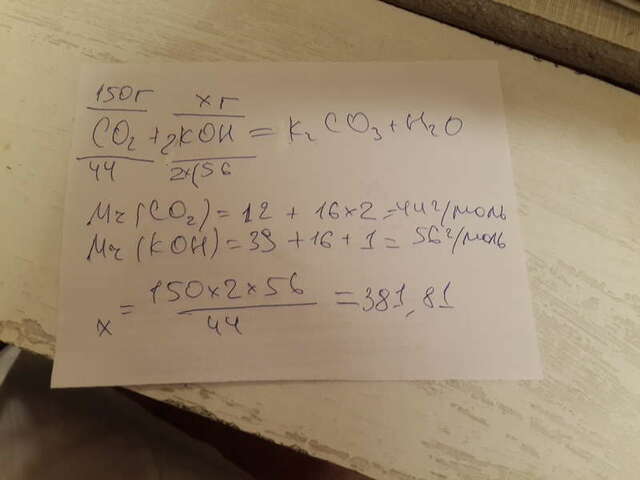 150г xг
CO₂ + 2KOH = K₂CO₃ + H₂O
44 2×(56
Mr (CO₂) = 12 + 16×2 = 44 г/моль
Mr (KOH) = 39 + 16 + 1 = 56 г/моль
x = 150×2×56 / 44 = 381,81